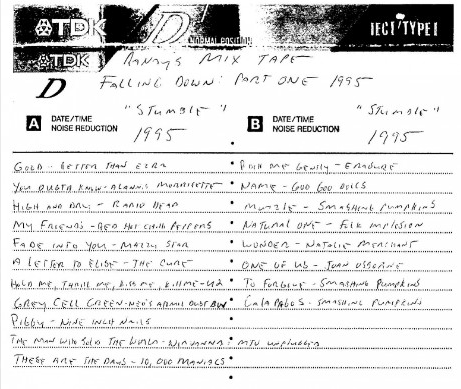 TDK
D
NORMAL POSITION
IECI/TYPE I
TDK
RANDY'S MIX TAPE
D
FALLING DOWN: PART ONE 1995
A DATE/TIME NOISE REDUCTION "STUMBLE" 1995
B DATE/TIME NOISE REDUCTION "STUMBLE" 1995
GOOD - BETTER THAN EZRA
YOU OUGHTA KNOW - ALANIS MORRISETTE
HIGH AND DRY - RADIO HEAD
MY FRIENDS - RED HOT CHILI PEPPERS
FADE INTO YOU - MAZZY STAR
A LETTER TO ELISE - THE CURE
HOLD ME, THRILL ME, KISS ME, KILL ME - U2
GREY CELL GREEN - NED'S ATOMIC DUST BIN
PIGGY - NINE INCH NAILS
THE MAN WHO SOLD THE WORLD - NIRVANNA: MTV UNPLUGGED
THESE ARE THE DAYS - 10,000 MANIACS
ME GENTLY - ERASURE
NAME - GOO GOO DOLLS
MUZZLE - SMASHING PUMPKINS
NATURAL ONE - FOLK IMPLOSION
WONDER - NATALIE MERCHANT
ONE OF US - JOAN OSBORNE
TO FORGIVE - SMASHING PUMPKINS
GALAPAGOS - SMASHING PUMPKINS